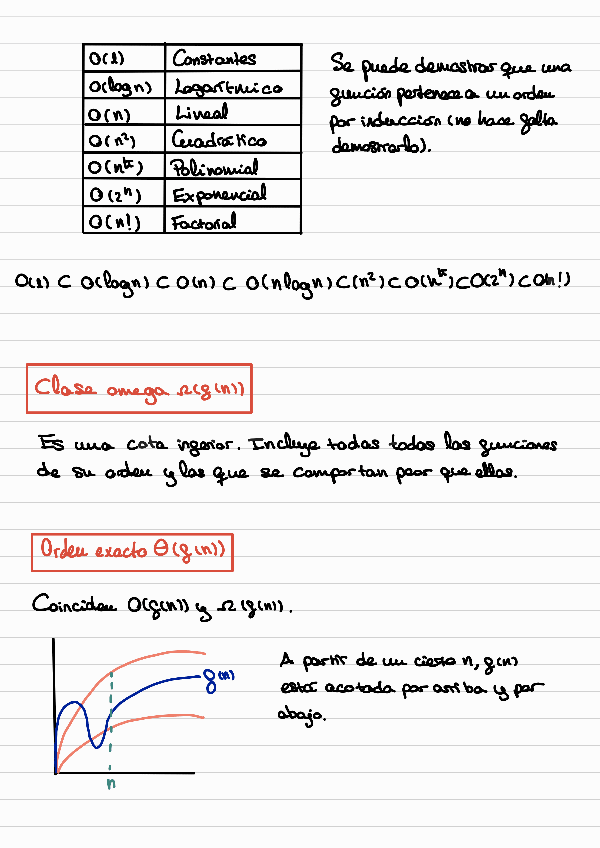 O(1) Constantes
O(logn) Logarítmico
O(n) Lineal
O(n²) Cuadrático
O(nᵏ) Polinomial
O(2ⁿ) Exponencial
O(n!) Factorial
Se puede demostrar que una
función pertenece a un orden
por inducción (no hace falta
demostrarlo).
O(1) ⊂ O(logn) ⊂ O(n) ⊂ O(nlogn) ⊂ (n²) ⊂ O(nᵏ) ⊂ O(2ⁿ) ⊂ O(n!)
Clase omega Ω(f(n))
Es una cota inferior. Incluye todas todas las funciones
de su orden y las que se comportan peor que ellas.
Orden exacto Θ(f(n))
Coinciden O(f(n)) y Ω(f(n)).
f(n)
n
A partir de un cierto n, f(n)
está acotada por arriba y por
abajo.